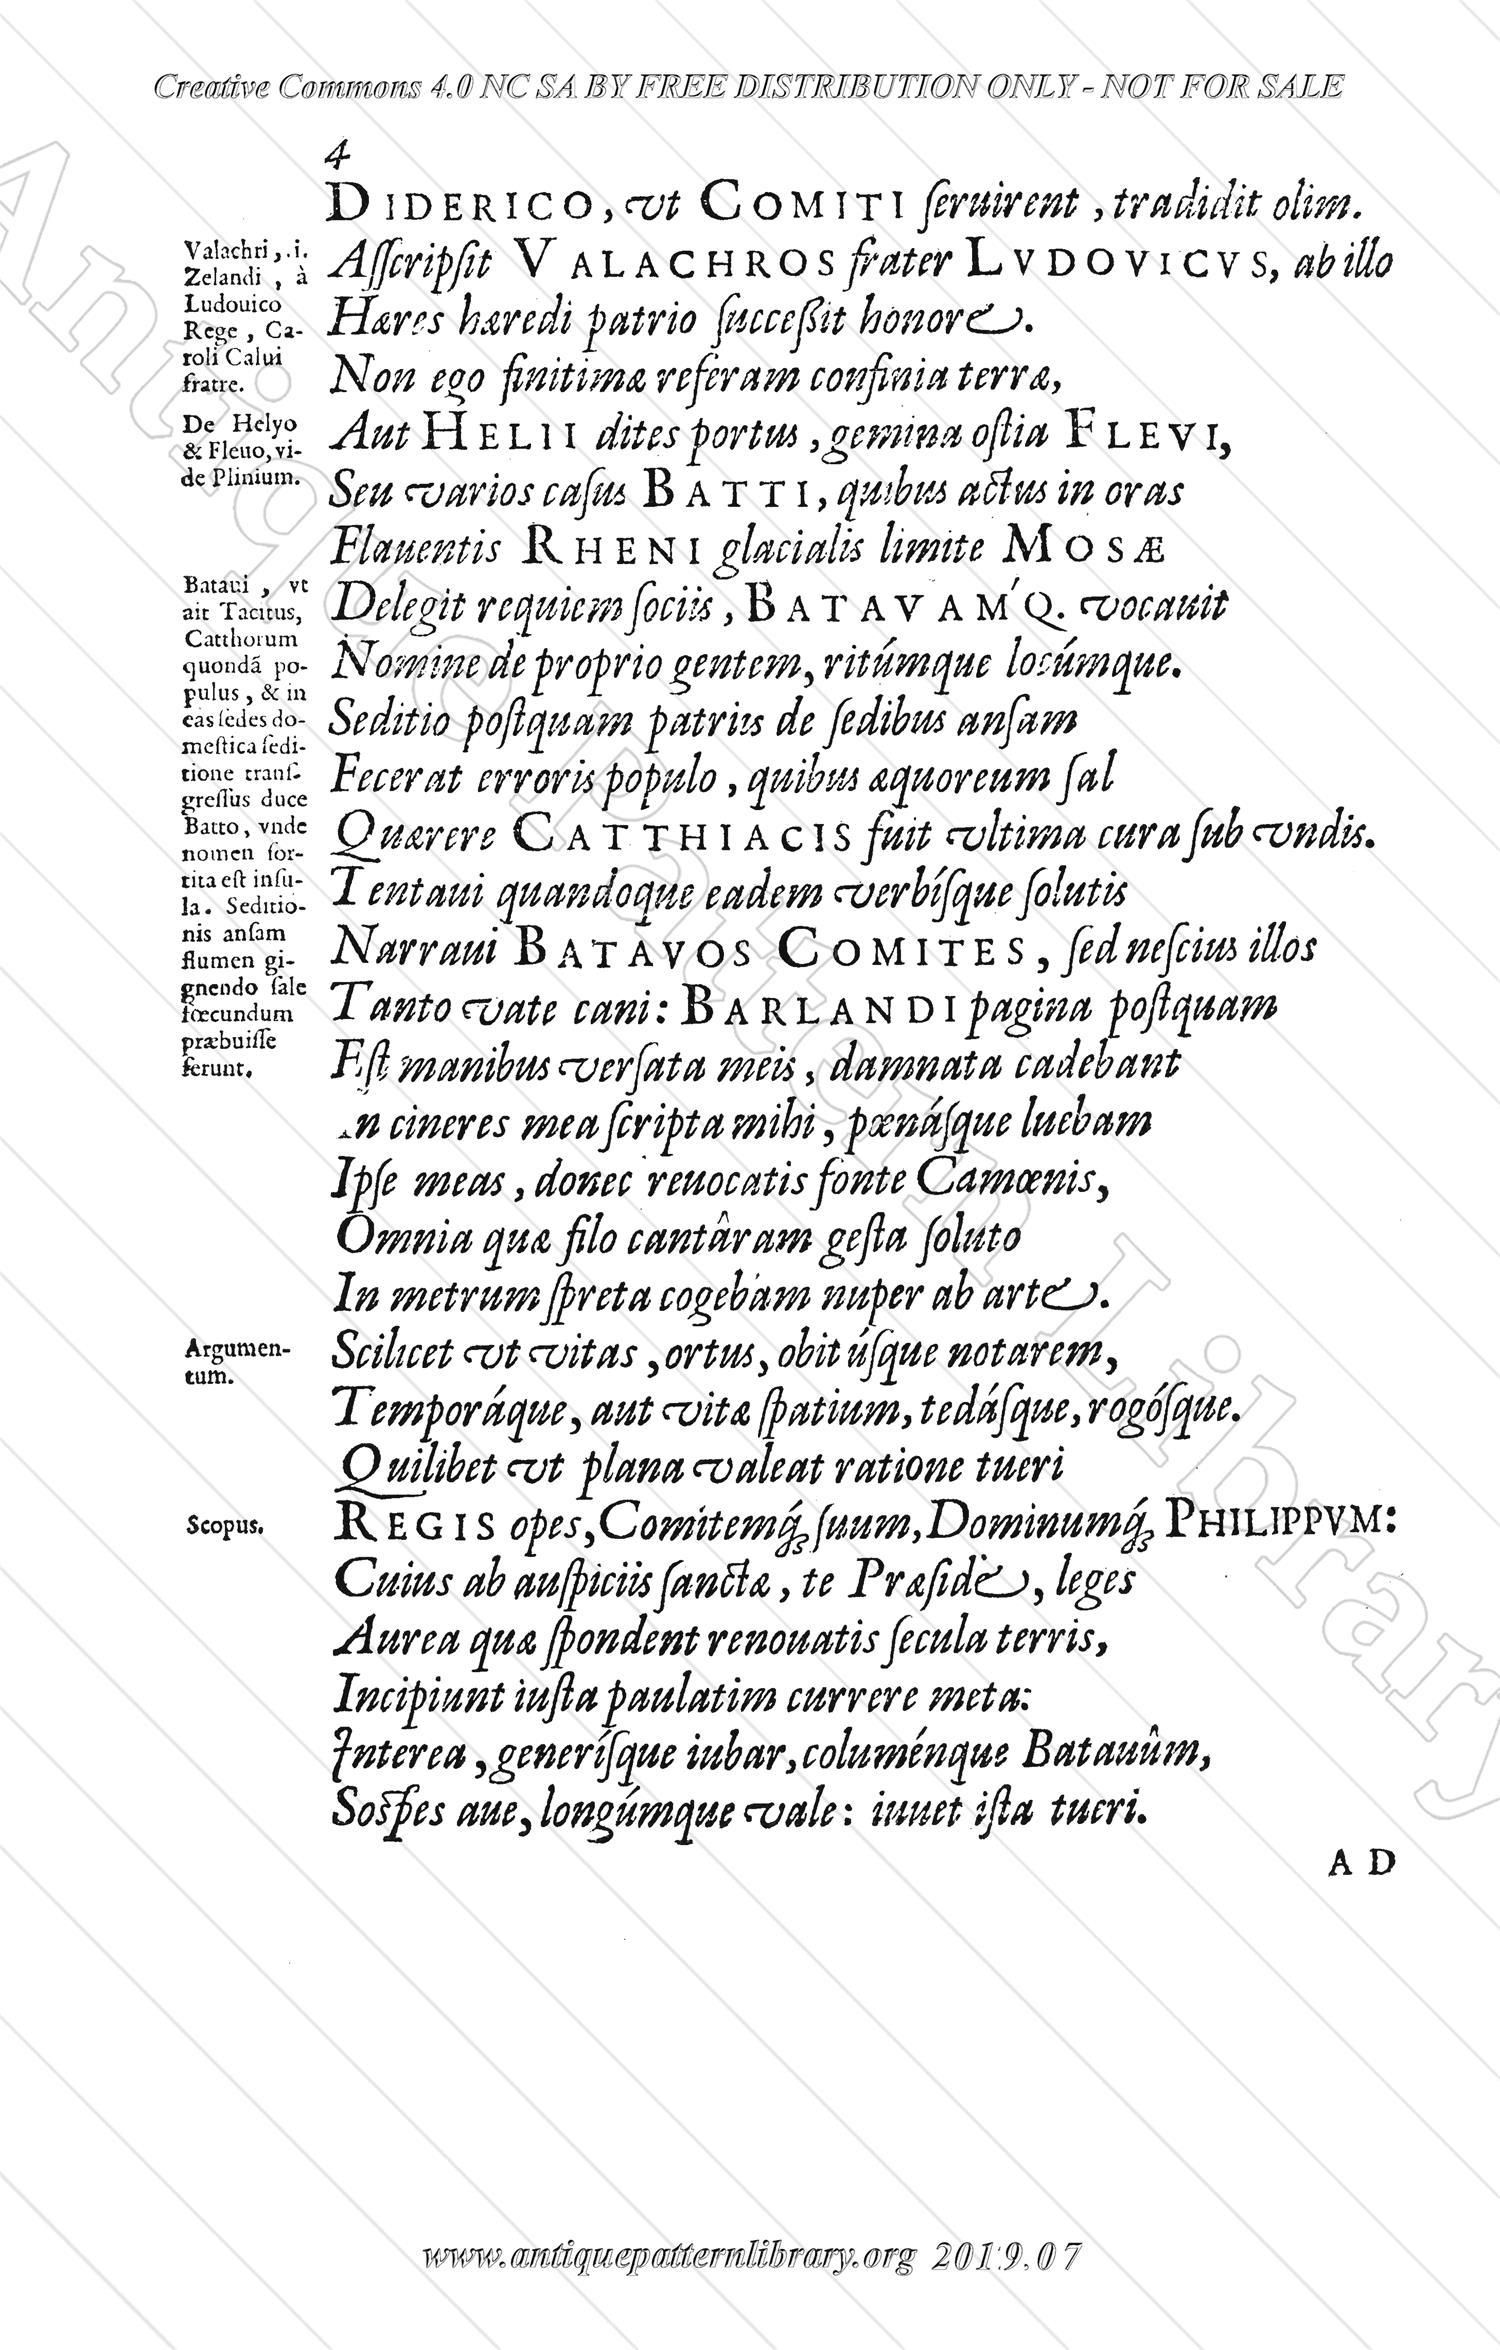 Creative Commons 4.0 NC SA BY FREE DISTRIBUTION ONLY - NOT FOR SALE
4
DIDERICO, vt COMITI ſeruirent, tradidit olim.
Aſſcripſit VALACHROS frater LVDOVICVS, ab illo
Hæres hæredi patrio ſucceßit honore.
Non ego finitimæ referam confinia terræ,
Aut HELII dites portus, gemina oſtia FLEVI,
Seu varios caſus BATTI, quibus actus in oras
Flauentis RHENI glacialis limite MOSÆ
Delegit requiem ſociis, BATAVAM'Q. vocauit
Nomine de proprio gentem, ritúmque locúmque.
Seditio poſtquam patriis de ſedibus anſam
Fecerat erroris populo, quibus æquoreum ſal
Quærere CATTHIACIS fuit vltima cura ſub vndis.
Tentaui quandoque eadem verbíſque ſolutis
Narraui BATAVOS COMITES, ſed neſcius illos
Tanto vate cani: BARLANDI pagina poſtquam
Eſt manibus verſata meis, damnata cadebant
n cineres mea ſcripta mihi, pœnáſque luebam
Ipſe meas, donec reuocatis fonte Camœnis,
Omnia quæ filo cantâram geſta ſoluto
In metrum ſpreta cogebam nuper ab arte.
Scilicet vt vitas, ortus, obitúſque notarem,
Temporáque, aut vitæ ſpatium, tedáſque, rogóſque.
Quilibet vt plana valeat ratione tueri
REGIS opes, Comitemq́; ſuum, Dominumq́; PHILIPPVM:
Cuius ab auſpiciis ſanctæ, te Præſide, leges
Aurea quæ ſpondent renouatis ſecula terris,
Incipiunt iuſta paulatim currere meta:
Interea, generíſque iubar, columénque Batauûm,
Soſpes aue, longúmque vale: iuuet iſta tueri.
A D
Valachri, .i.
Zelandi, à
Ludouico
Rege, Ca-
roli Calui
fratre.
De Helyo
& Fleuo, vi-
de Plinium.
Bataui, vt
ait Tacitus,
Catthorum
quondã po-
pulus, & in
eas ſedes do-
meſtica ſedi-
tione tranſ-
greſſus duce
Batto, vnde
nomen ſor-
tita eſt inſu-
la. Seditio-
nis anſam
flumen gi-
gnendo ſale
fœcundum
præbuiſſe
ferunt.
Argumen-
tum.
Scopus.
Antique Pattern Library
www.antiquepatternlibrary.org 2019.07